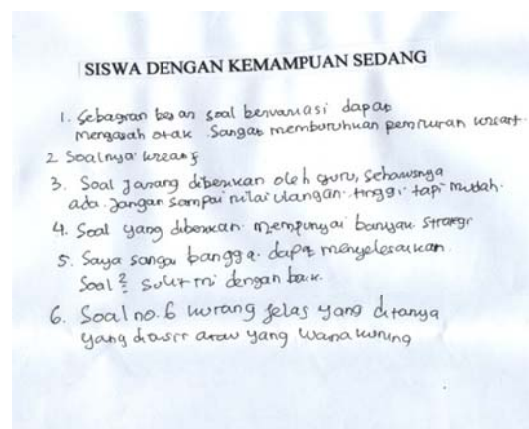 SISWA DENGAN KEMAMPUAN SEDANG
1. Sebagian besar soal bervariasi dapat
mengasah otak. Sangat membutuhkan pemikiran kreatif.
2 Soalnya kreatif
3. Soal jarang diberikan oleh guru, seharusnya
ada. Jangan sampai nilai ulangan tinggi tapi mudah.
4. Soal yang diberikan mempunyai banyak strategi
5. Saya sangat bangga dapat menyelesaikan
Soal2 sulit ini dengan baik.
6. Soal no.6 kurang jelas yang ditanya
yang diarsir atau yang warna kuning